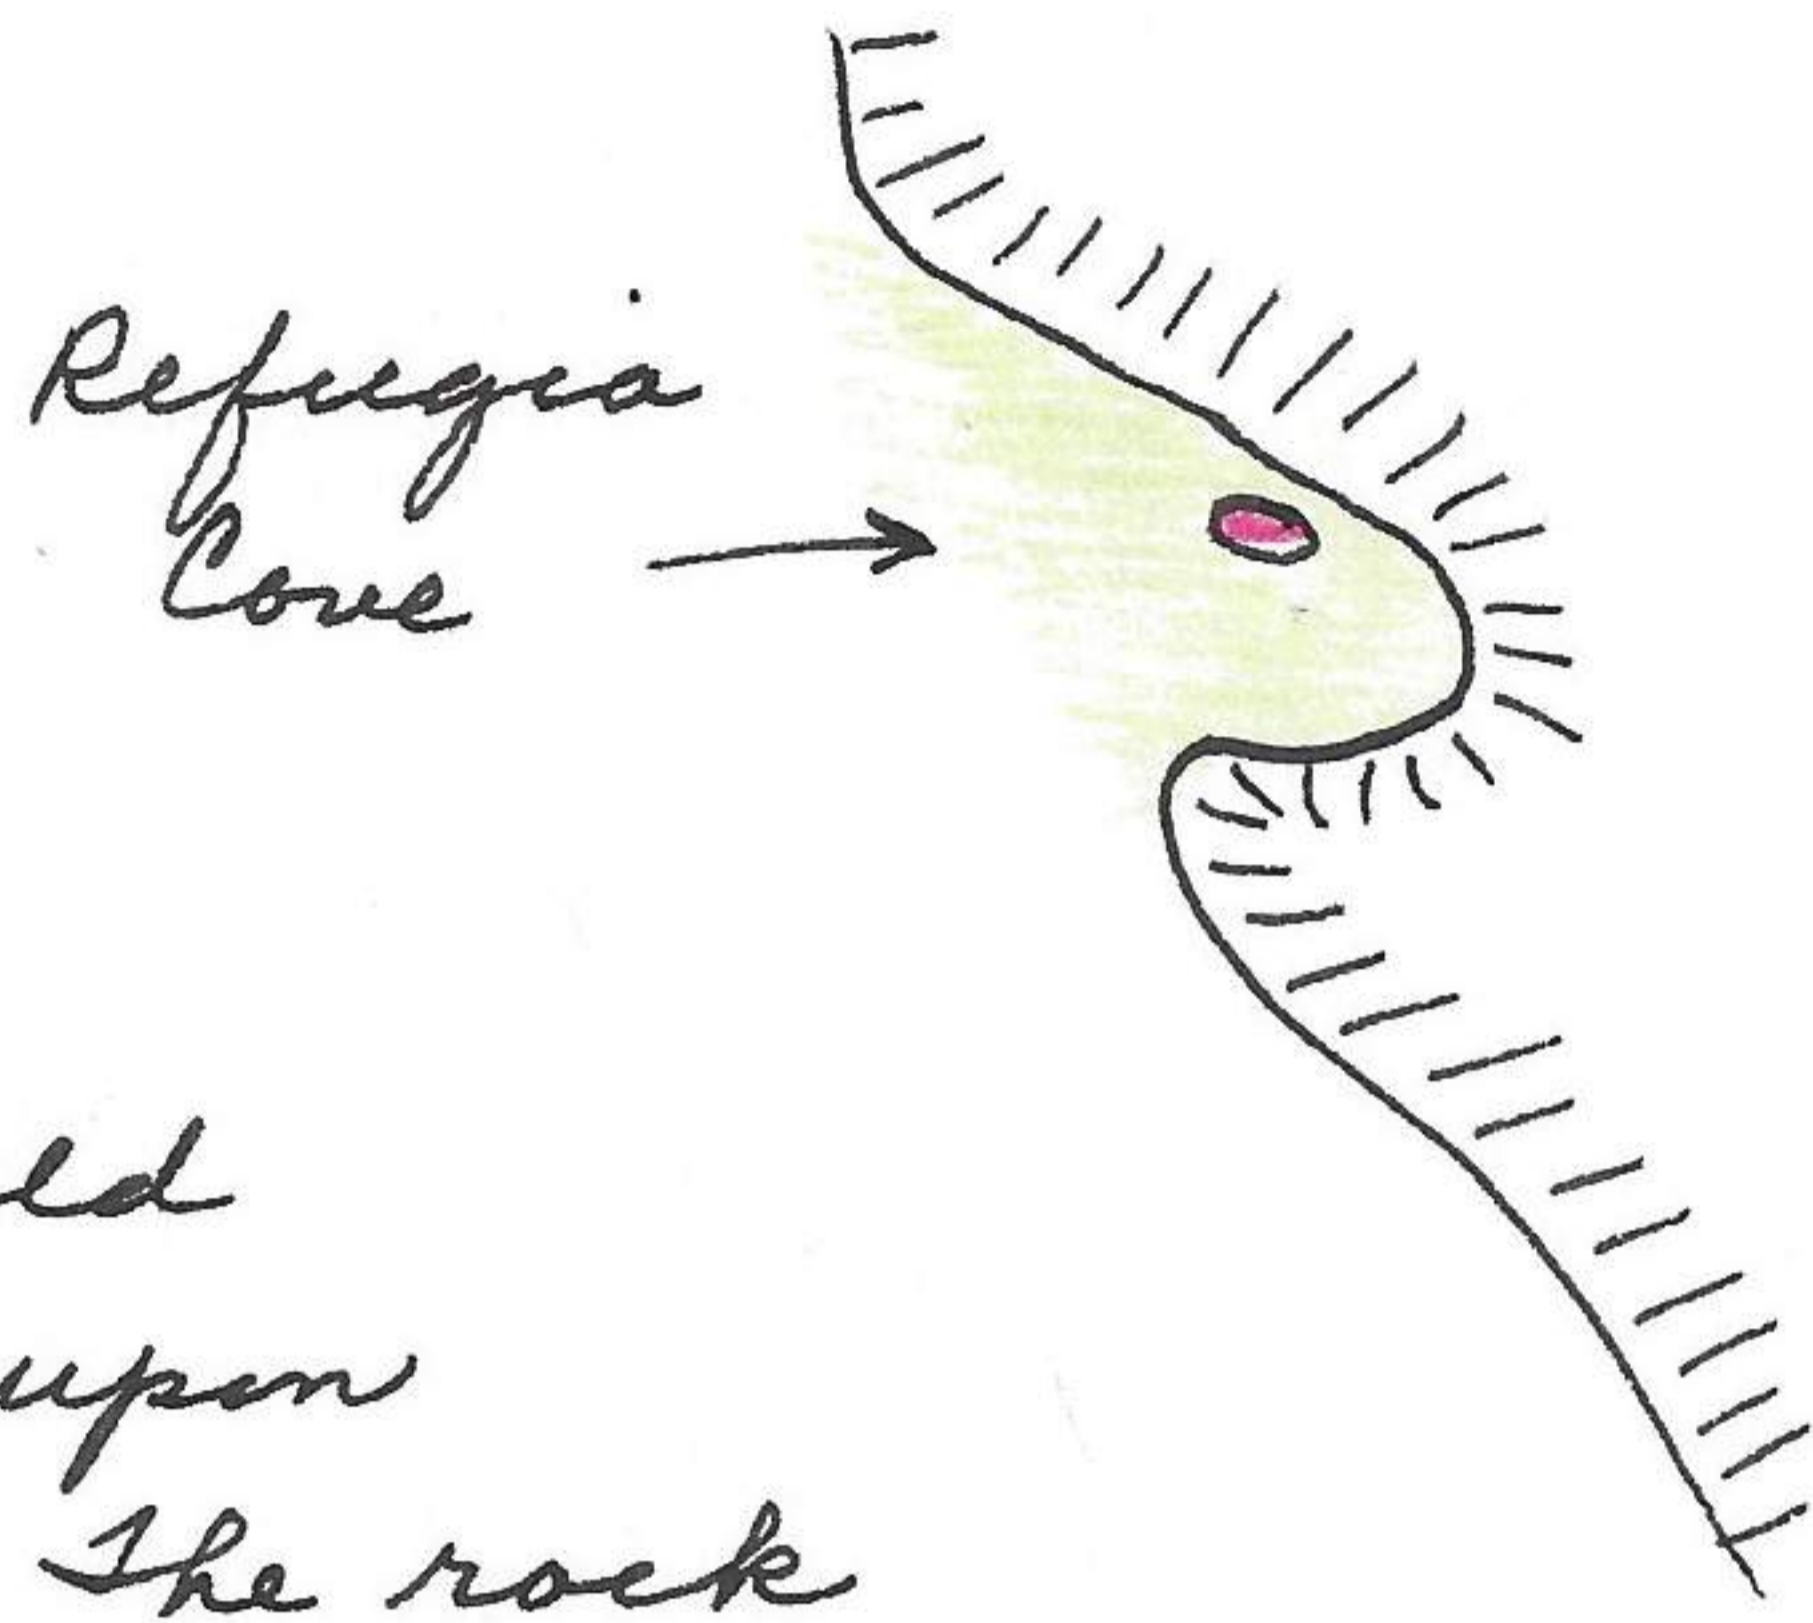 Refugia
Cove
ld
upon
The rock